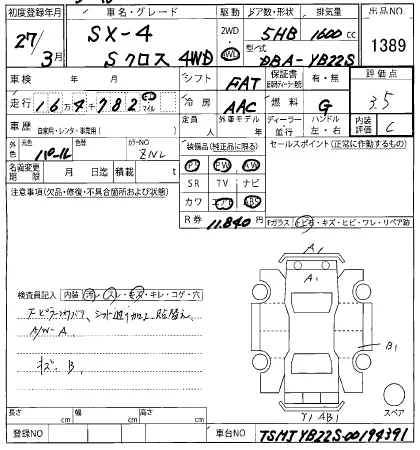 初度登録年月 車名・グレード 駆動 ドア数・形状 排気量 出品NO.
27/3月 SX-4 Sクロス 4WD 2WD 4WD 5HB 1600 cc 1389
型式 DBA-YB22S
車検 年 月 シフト FAT 保証書 有・無 評価点
走行 16万4782 マイル 冷房 AAC 燃料 G 3.5
車歴 自家用・レンタ・事業用( ) 定員 人 外車モデル 年 ディーラー 並行 ハンドル 左・右 内装評価 C
外色 元色 パール 色替 カラーNO ZNL 装備品(純正品に限る) セールスポイント(正常に作動するもの)
PS PW AW
名義変更期限 月 日迄 積載 t SR TV ナビ
注意事項(欠品・修復・不具合箇所および状態) カワ エアB ABS
R券 11,840円 Fガラス・トビ石・キズ・ヒビ・ワレ・リペア跡
A1
A1
検査員記入 内装 汚レ・スレ・キズ・キレ・コゲ・穴
A/W-A
キズ、B
B1
Y1 AB1
スペア
長さ cm 幅 cm 高さ cm
登録NO 車台NO TSMJYB22S-00194391